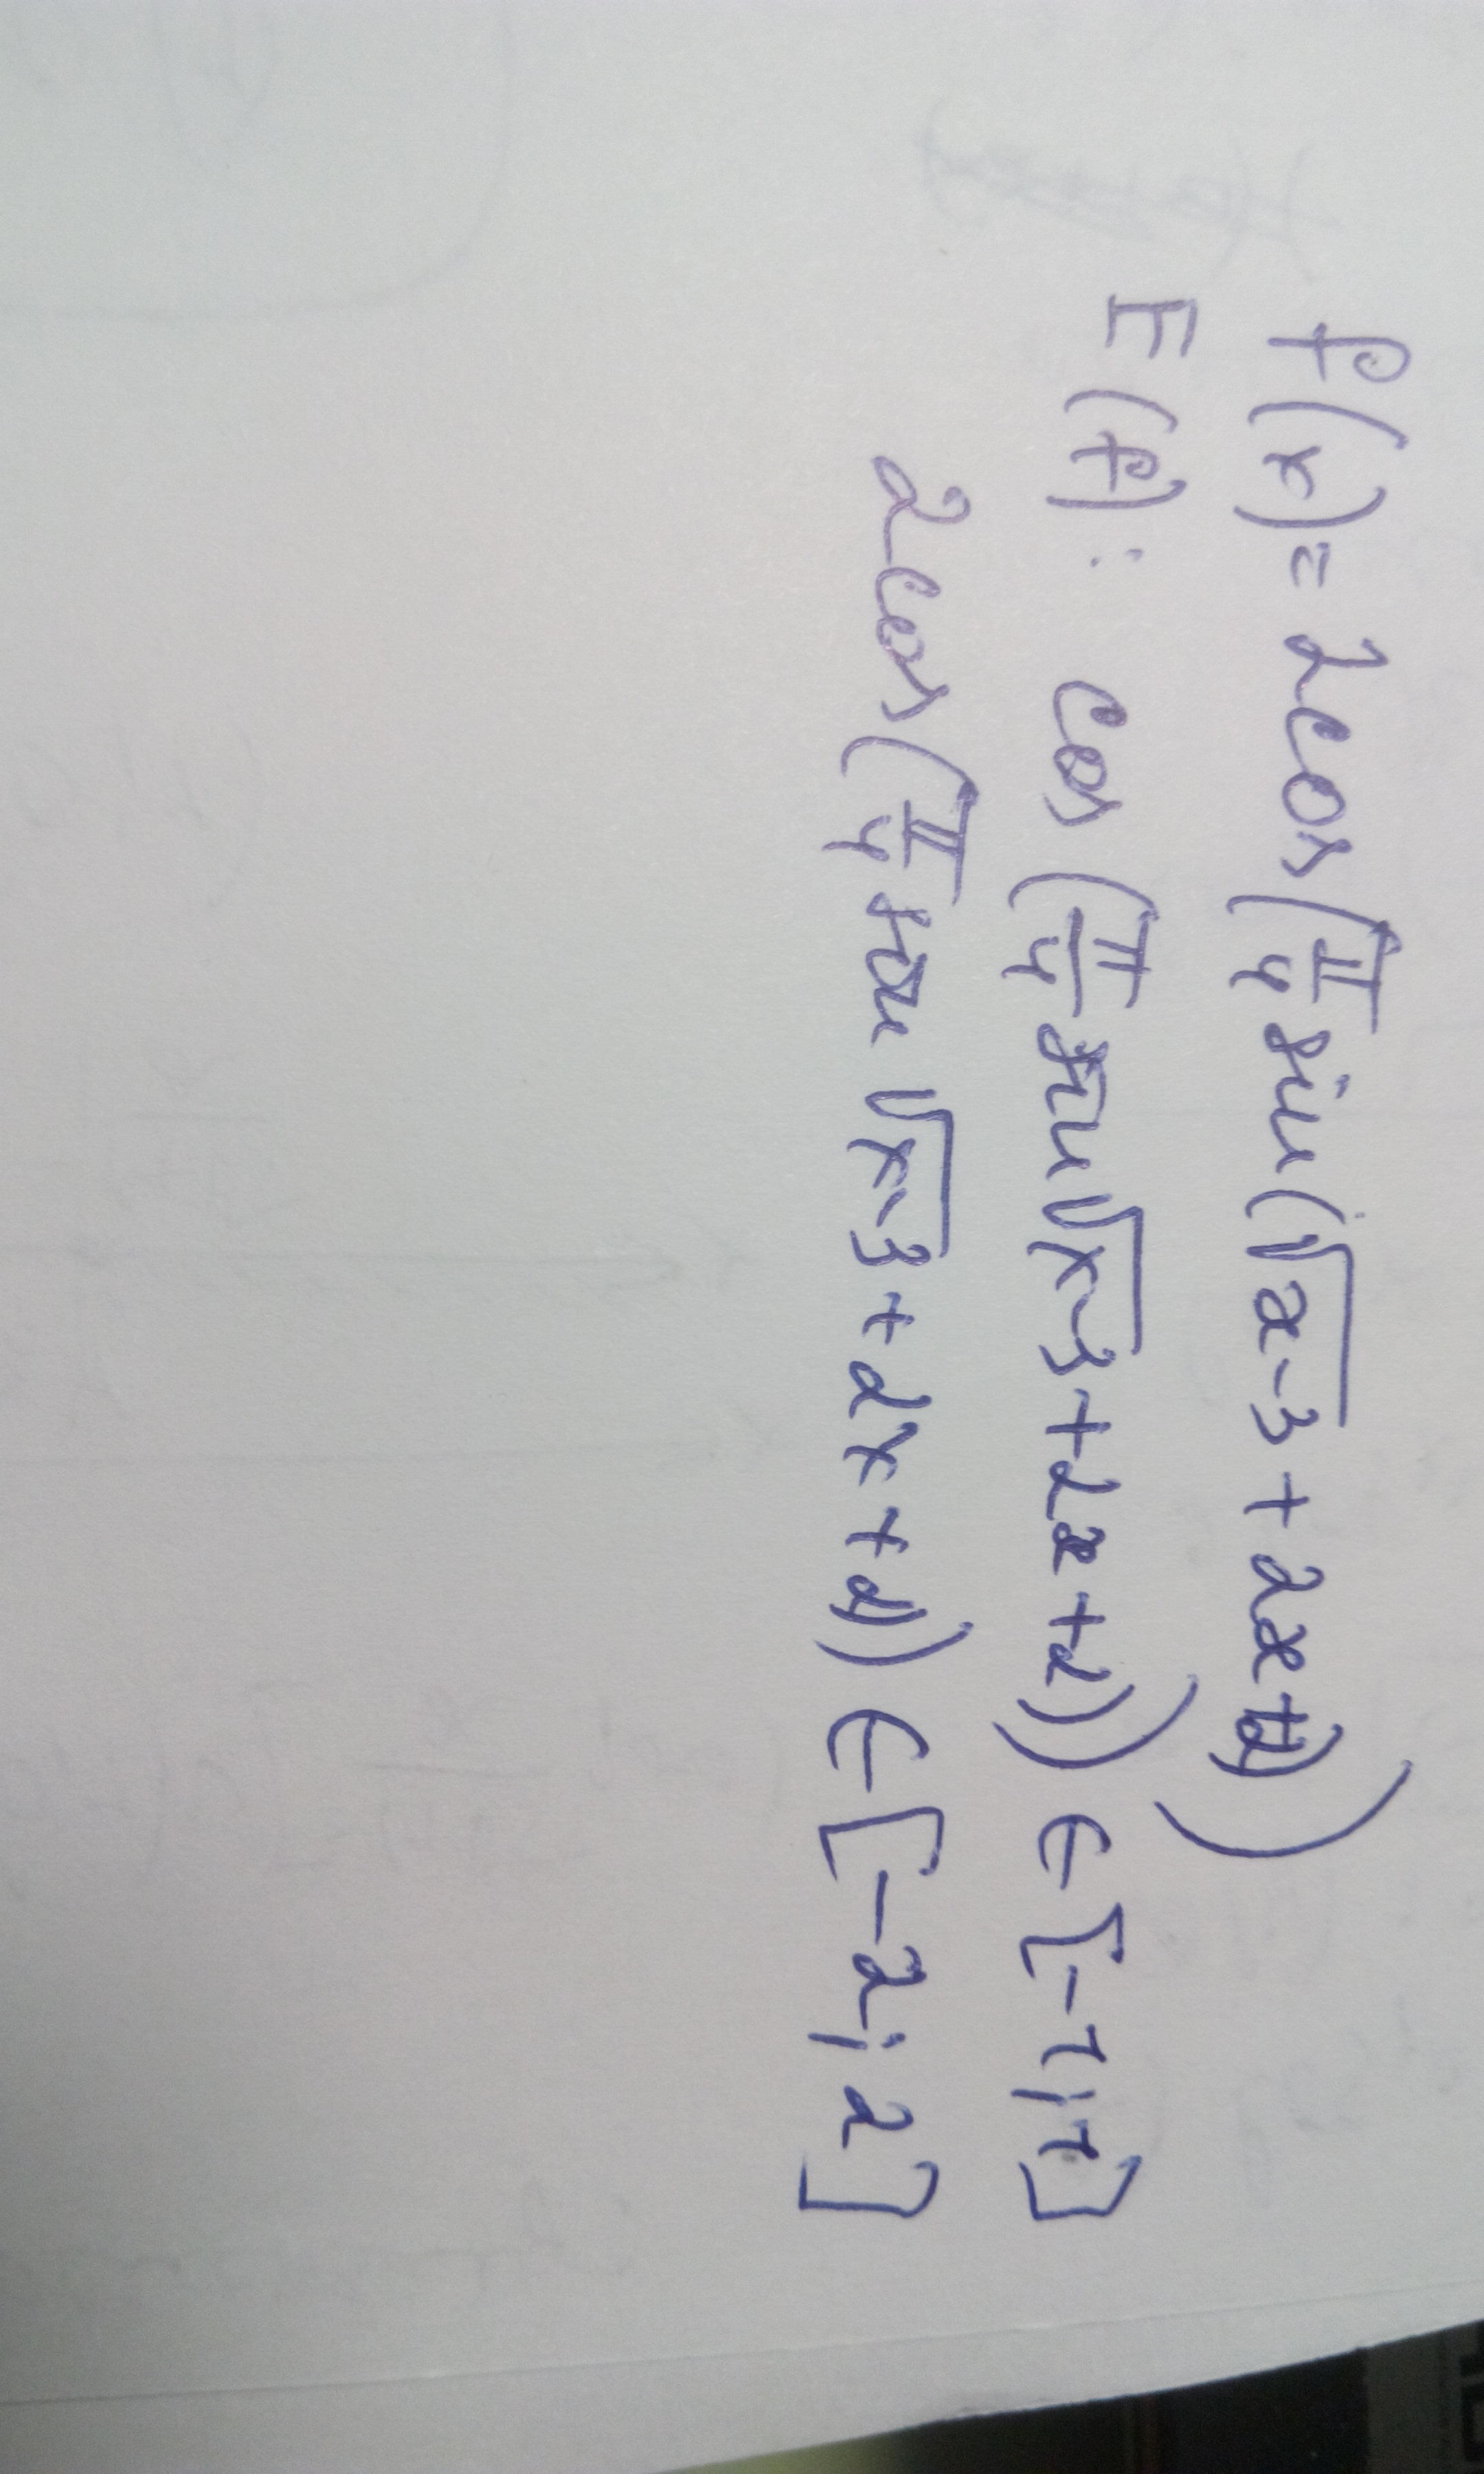 f(x) = 2cos(π/4 sin(√x-3 + 2x+2))
E(f): cos(π/4 sin√x-3 + 2x+2)) ∈ [-1; 1]
2cos(π/4 sin √x-3 + 2x + 2)) ∈ [-2; 2]